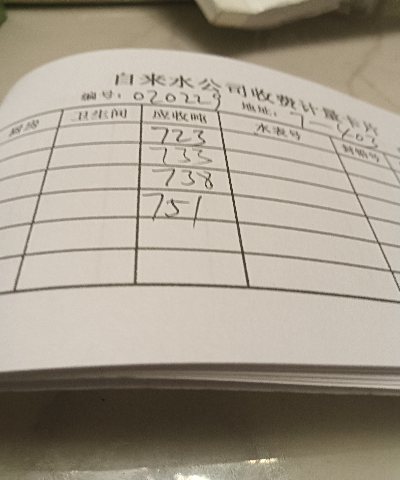 自来水公司收费计量卡片
编号：020229 地址：7-403
厨房 卫生间 应收吨 水表号 封铅号
723
733
738
751